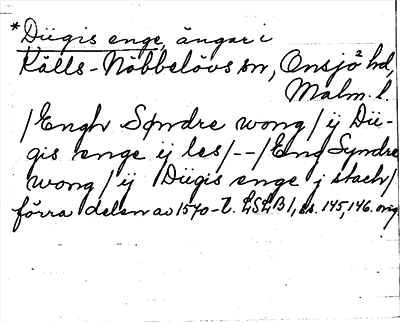 *Diigis enge, ängar i
Källs-Nöbbelövs sn, Onsjö hd,
Malm. l.
/Engh Søndre wong/ ij Dii-
gis enge ij les/--/Eng Syndre
wong/ ij Diigis enge j stach/
förra delen av 1570-t. LSLB 1, ss. 145, 146. orig.